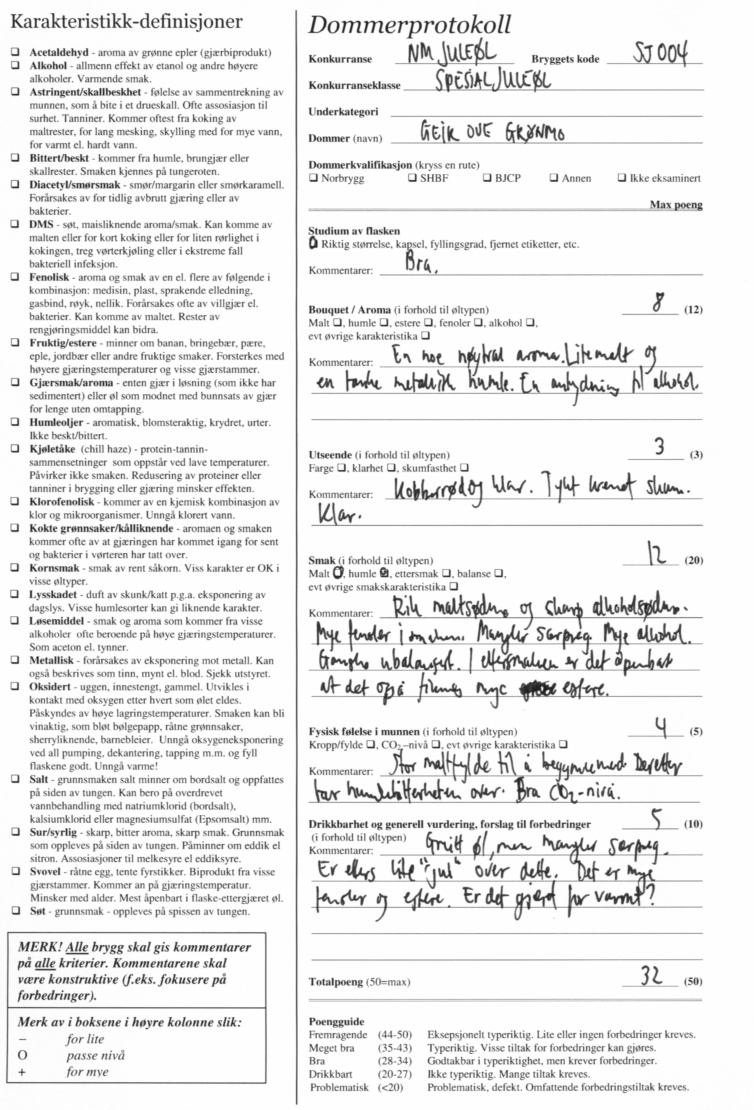 Karakteristikk-definisjoner
❑ Acetaldehyd - aroma av grønne epler (gjærbiprodukt)
❑ Alkohol - allmenn effekt av etanol og andre høyere
alkoholer. Varmende smak.
❑ Astringent/skallbeskhet - følelse av sammentrekning av
munnen, som å bite i et drueskall. Ofte assosiasjon til
surhet. Tanniner. Kommer oftest fra koking av
maltrester, for lang mesking, skylling med for mye vann,
for varmt el. hardt vann.
❑ Bittert/beskt - kommer fra humle, brungjær eller
skallrester. Smaken kjennes på tungeroten.
❑ Diacetyl/smørsmak - smør/margarin eller smørkaramell.
Forårsakes av for tidlig avbrutt gjæring eller av
bakterier.
❑ DMS - søt, maisliknende aroma/smak. Kan komme av
malten eller for kort koking eller for liten rørlighet i
kokingen, treg vørterkjøling eller i ekstreme fall
bakteriell infeksjon.
❑ Fenolisk - aroma og smak av en el. flere av følgende i
kombinasjon: medisin, plast, sprakende elledning,
gasbind, røyk, nellik. Forårsakes ofte av villgjær el.
bakterier. Kan komme av maltet. Rester av
rengjøringsmiddel kan bidra.
❑ Fruktig/estere - minner om banan, bringebær, pære,
eple, jordbær eller andre fruktige smaker. Forsterkes med
høyere gjæringstemperatur og visse gjærstammer.
❑ Gjærsmak/aroma - enten gjær i løsning (som ikke har
sedimentert) eller øl som modnet med bunnsats av gjær
for lenge uten omtapping.
❑ Humleoljer - aromatisk, blomsteraktig, krydret, urter.
Ikke beskt/bittert.
❑ Kjøletåke (chill haze) - protein-tannin-
sammensetninger som oppstår ved lave temperaturer.
Påvirker ikke smaken. Redusering av proteiner eller
tanniner i brygging eller gjæring minsker effekten.
❑ Klorofenolisk - kommer av en kjemisk kombinasjon av
klor og mikroorganismer. Unngå klorert vann.
❑ Kokte grønnsaker/kålliknende - aromaen og smaken
kommer ofte av at gjæringen har kommet igang for sent
og bakterier i vørteren har tatt over.
❑ Kornsmak - smak av rent såkorn. Viss karakter er OK i
visse øltyper.
❑ Lysskadet - duft av skunk/katt p.g.a. eksponering av
dagslys. Visse humlesorter kan gi liknende karakter.
❑ Løsemiddel - smak og aroma som kommer fra visse
alkoholer ofte beroende på høye gjæringstemperaturer.
Som aceton el. tynner.
❑ Metallisk - forårsakes av eksponering mot metall. Kan
også beskrives som tinn, mynt el. blod. Sjekk utstyret.
❑ Oksidert - uggen, innestengt, gammel. Utvikles i
kontakt med oksygen etter hvert som ølet eldes.
Påskyndes av høye lagringstemperaturer. Smaken kan bli
vinaktig, som bløt bølgepapp, råtne grønsaker,
sherryliknende, barnebleier. Unngå oksygeneksponering
ved all pumping, dekantering, tapping m.m. og fyll
flaskene godt. Unngå varme!
❑ Salt - grunnsmaken salt minner om bordsalt og oppfattes
på siden av tungen. Kan bero på overdrevet
vannbehandling med natriumklorid (bordsalt),
kalsiumklorid eller magnesiumsulfat (Epsomsalt) mm.
❑ Sur/syrlig - skarp, bitter aroma, skarp smak. Grunnsmak
som oppleves på siden av tungen. Påminner om eddik el
sitron. Assosiasjoner til melkesyre el eddiksyre.
❑ Svovel - råtne egg, tente fyrstikker. Biprodukt fra visse
gjærstammer. Kommer an på gjæringstemperatur.
Minsker med alder. Mest åpenbart i flaske-ettergjæret øl.
❑ Søt - grunnsmak - oppleves på spissen av tungen.
MERK! Alle brygg skal gis kommentarer
på alle kriterier. Kommentarene skal
være konstruktive (f.eks. fokusere på
forbedringer).
Merk av i boksene i høyre kolonne slik:
– for lite
O passe nivå
+ for mye
Dommerprotokoll
Konkurranse NM JULEØL Bryggets kode SJ004
Konkurranseklasse SPESIALJULEØL
Underkategori
Dommer (navn) GEIR OVE GRØNMO
Dommerkvalifikasjon (kryss en rute)
❑ Norbrygg ❑ SHBF ❑ BJCP ❑ Annen ❑ Ikke eksaminert
Max poeng
Studium av flasken
❑ Riktig størrelse, kapsel, fyllingsgrad, fjernet etiketter, etc.
Kommentarer: Bra.
Bouquet / Aroma (i forhold til øltypen) 8 (12)
Malt ❑, humle ❑, estere ❑, fenoler ❑, alkohol ❑,
evt øvrige karakteristika ❑
Kommentarer: En noe nøytral aroma. Lite malt og
en tanke metallisk humle. En antydning til alkohol.
Utseende (i forhold til øltypen) 3 (3)
Farge ❑, klarhet ❑, skumfasthet ❑
Kommentarer: Kobberrød og klar. Tykt kremet skum.
Klar.
Smak (i forhold til øltypen) 12 (20)
Malt ❑, humle ❑, ettersmak ❑, balanse ❑,
evt øvrige smakskarakteristika ❑
Kommentarer: Rik maltsødme og skarp alkoholsødme.
Mye fenoler i smaken. Mangler særpreg. Mye alkohol.
Ganske ubalansert. I ettersmaken er det åpenbart
at det også finnes mye estere.
Fysisk følelse i munnen (i forhold til øltypen) 4 (5)
Kropp/fylde ❑, CO2–nivå ❑, evt øvrige karakteristika ❑
Kommentarer: Stor maltfylde til å begynne med. Deretter
tar humlebitterheten over. Bra CO2-nivå.
Drikkbarhet og generell vurdering, forslag til forbedringer 5 (10)
(i forhold til øltypen)
Kommentarer: Greitt øl, men mangler særpreg.
Er ellers lite "jul" over dette. Det er mye
fenoler og estere. Er det gjæret for varmt?
Totalpoeng (50=max) 32 (50)
Poengguide
Fremragende (44-50) Eksepsjonelt typeriktig. Lite eller ingen forbedringer kreves.
Meget bra (35-43) Typeriktig. Visse tiltak for forbedringer kan gjøres.
Bra (28-34) Godtakbar i typeriktighet, men krever forbedringer.
Drikkbart (20-27) Ikke typeriktig. Mange tiltak kreves.
Problematisk (<20) Problematisk, defekt. Omfattende forbedringstiltak kreves.